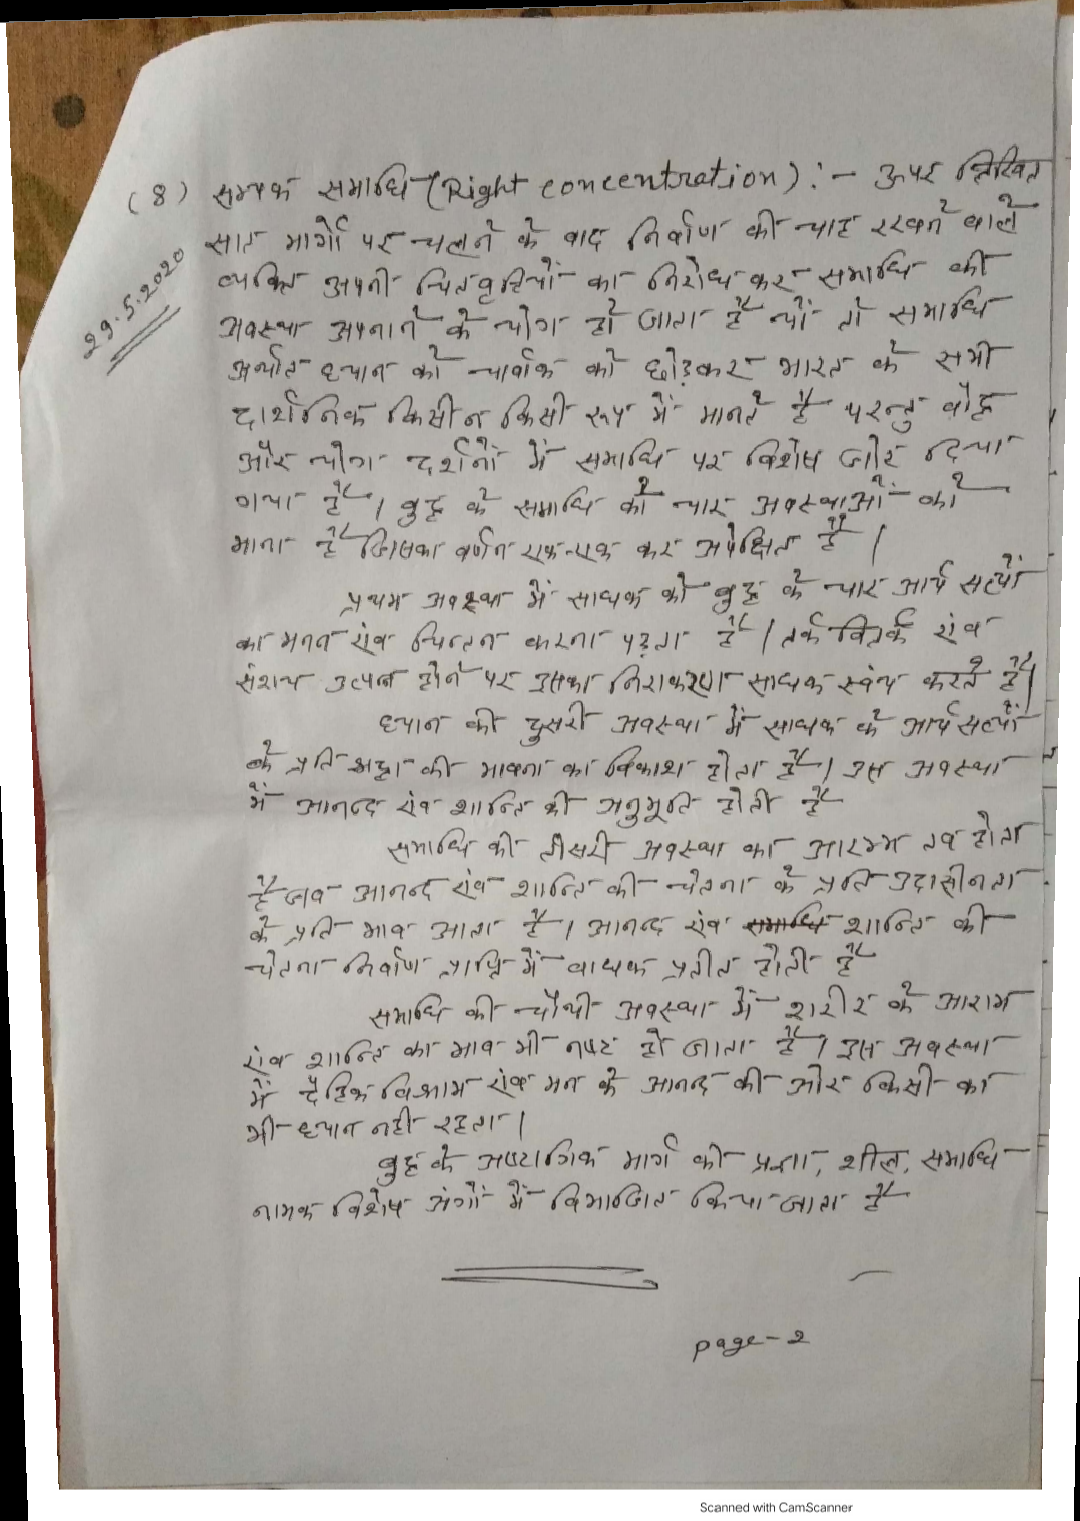 (8) सम्यक समाधि (Right concentration) :- ऊपर लिखित
सात मार्गो पर चलने के बाद निर्वाण की चाह रखने वाले
व्यक्ति अपनी चितवृतियों का निरोध कर समाधि की
29.5.2020
अवस्था अपनाने के योग हो जाता है यों तो समाधि
अर्थात ध्यान को चार्वाक को छोड़कर भारत के सभी
दार्शनिक किसी न किसी रूप में मानते है परन्तु बौद्ध
और योग दर्शनों में समाधि पर विशेष जोर दिया
गया है। बुद्ध के समाधि की चार अवस्थाओं को
माना है जिसका वर्णन एक-एक कर अपेक्षित है।
प्रथम अवस्था में साधक को बुद्ध के चार आर्य सत्यों
का मनन एंव चिन्तन करना पड़ता है। तर्क वितर्क एंव
संशय उत्पन्न होने पर उसका निराकरण साधक स्वंय करते है।
ध्यान की दुसरी अवस्था में साधक के आर्य सत्यों
के प्रति श्रद्धा की भावना का विकाश होता है। उस अवस्था
में आनन्द एंव शान्ति की अनुभूति होती है
समाधि की तीसरी अवस्था का आरम्भ तब होता
है जब आनन्द एंव शान्ति की चेतना के प्रति उदासीनता
के प्रति भाव आता है। आनन्द एंव समाधि शान्ति की
चेतना निर्वाण प्राप्ति में बाधक प्रतीत होती है
समाधि की चौथी अवस्था में शरीर के आराम
एंव शान्ति का भाव भी नष्ट हो जाता है। इस अवस्था
में दैहिक विश्राम एंव मन के आनन्द की ओर किसी का
भी ध्यान नही रहता।
बुद्ध के अष्टागिक मार्ग को प्रज्ञा, शील, समाधि
नामक विशेष अंगों में विभाजित किया जाता है
page-2
Scanned with CamScanner